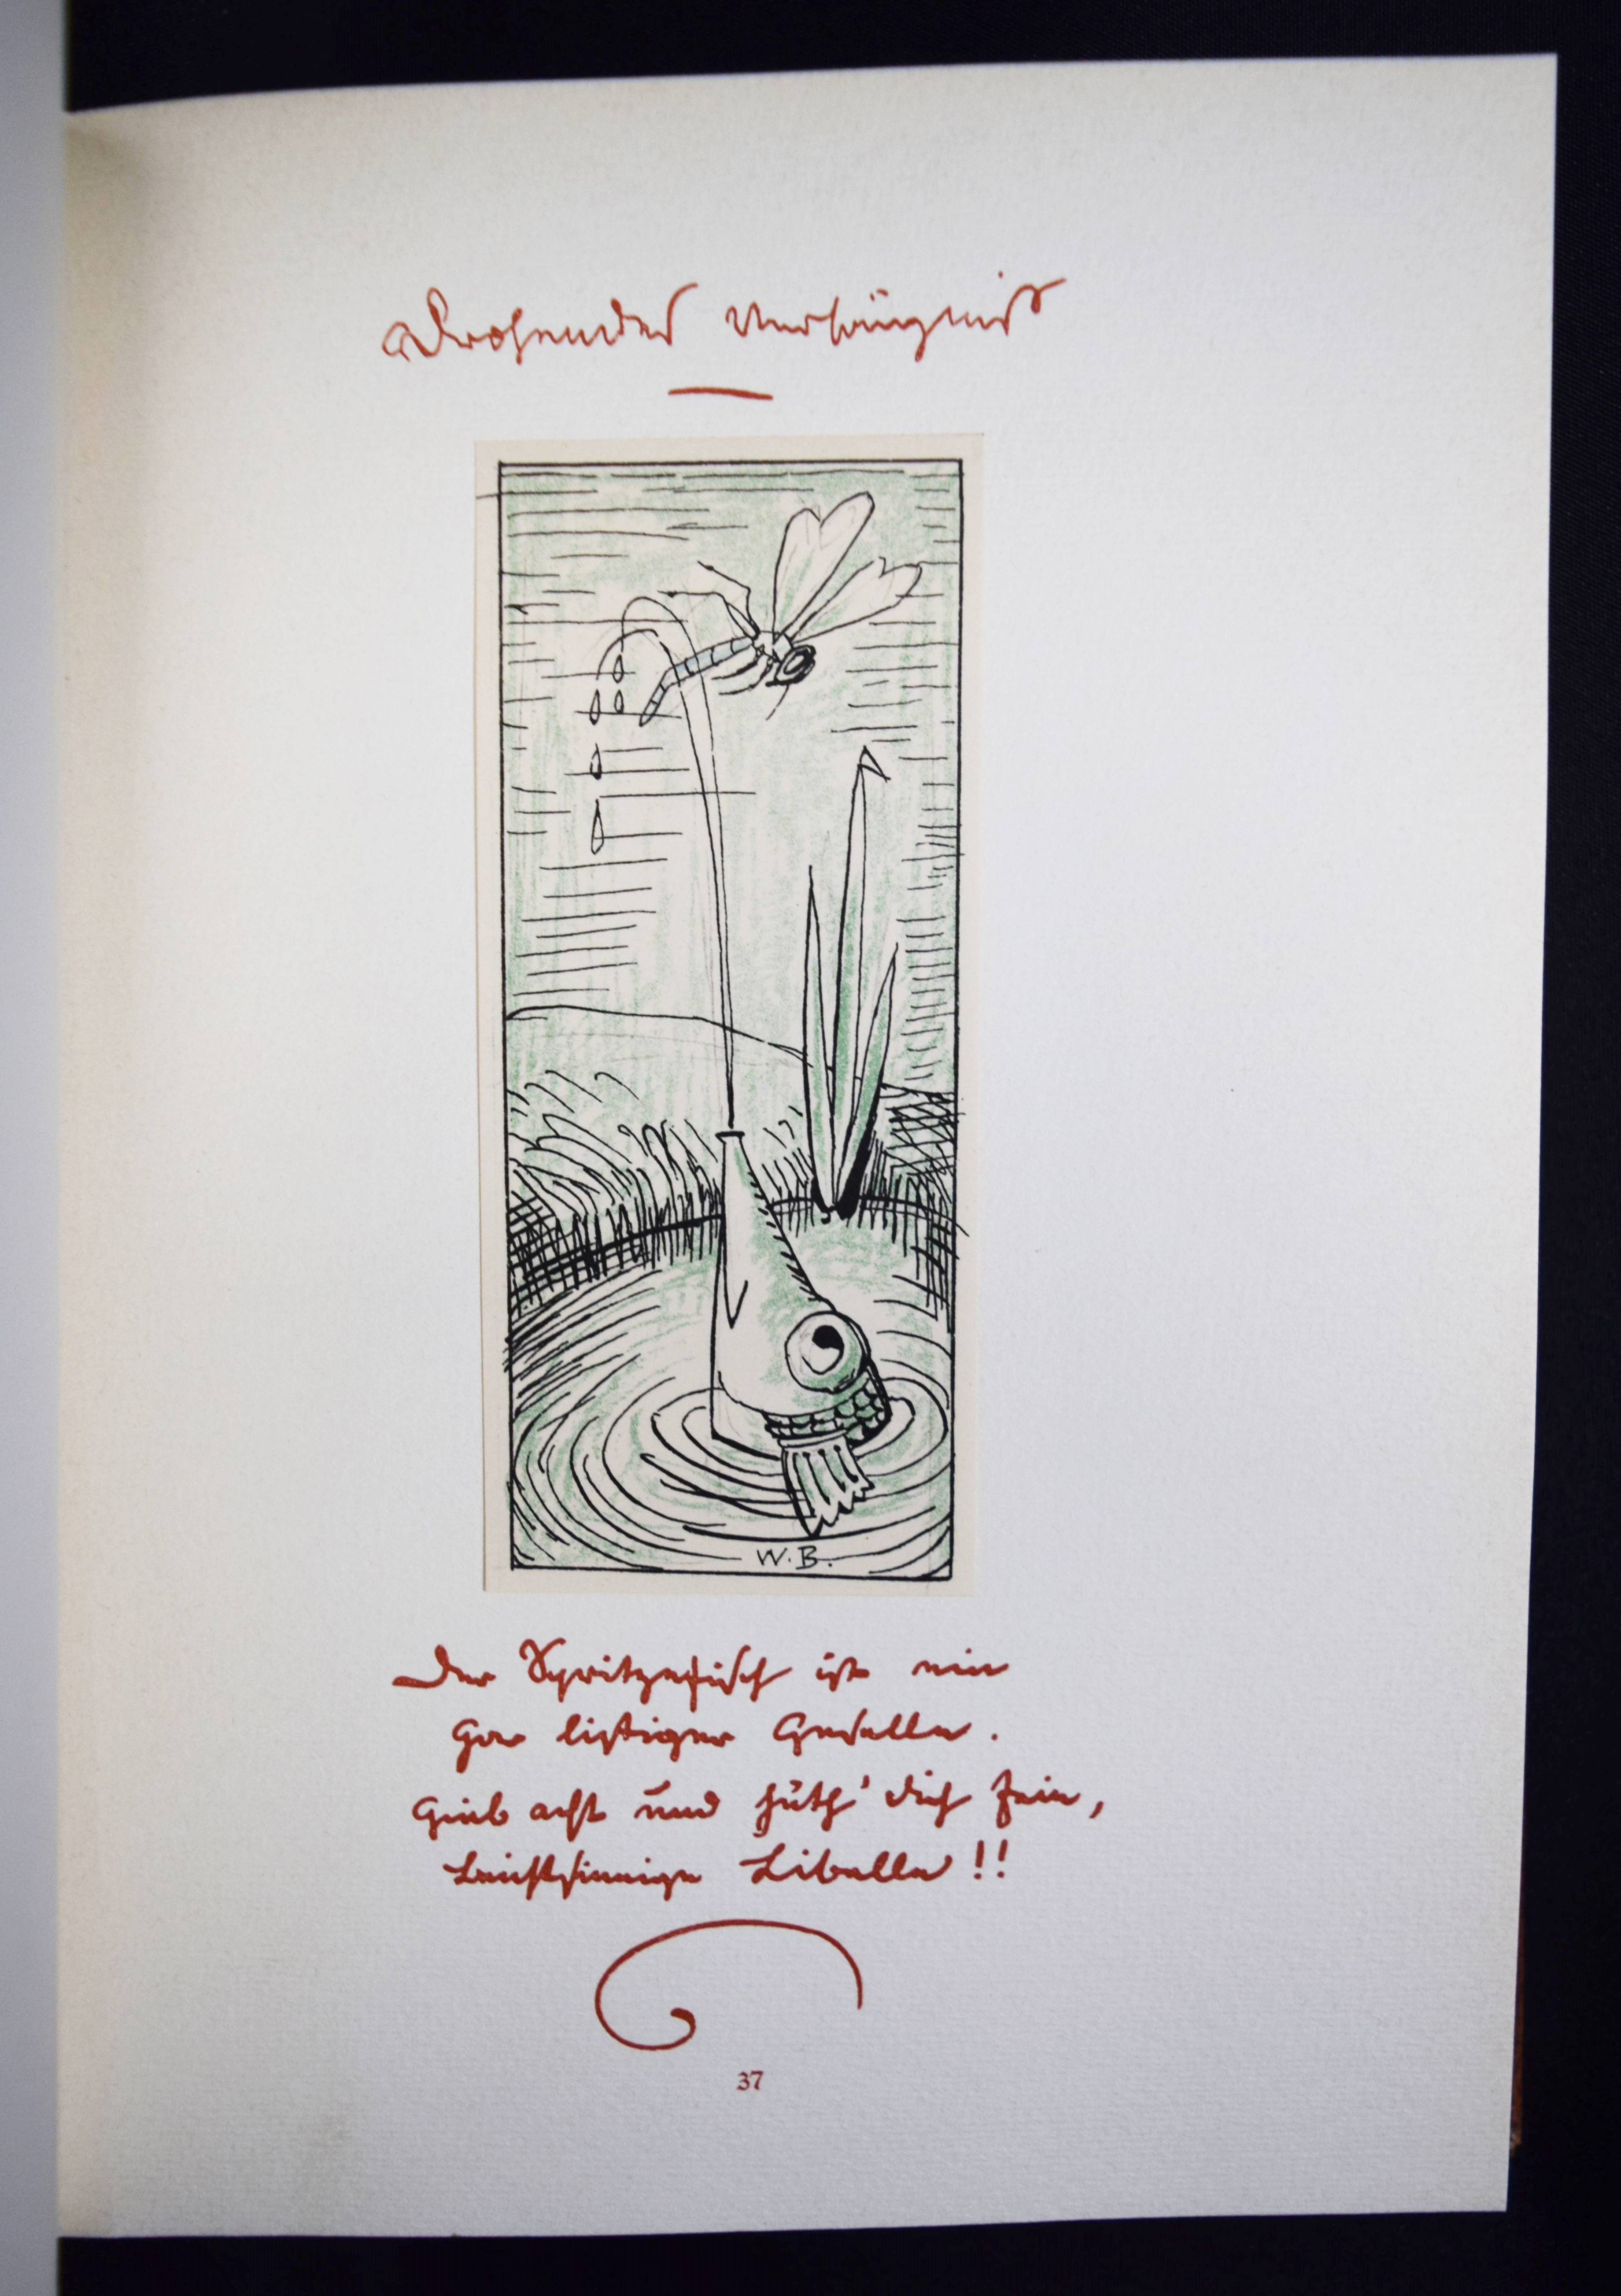 Drohendes Verhängniß
W.B.
Der Spritzefisch ist ein
Gar listiger Geselle.
Gieb acht und hüth' dich fein,
Leichtsinnige Libelle!!
37